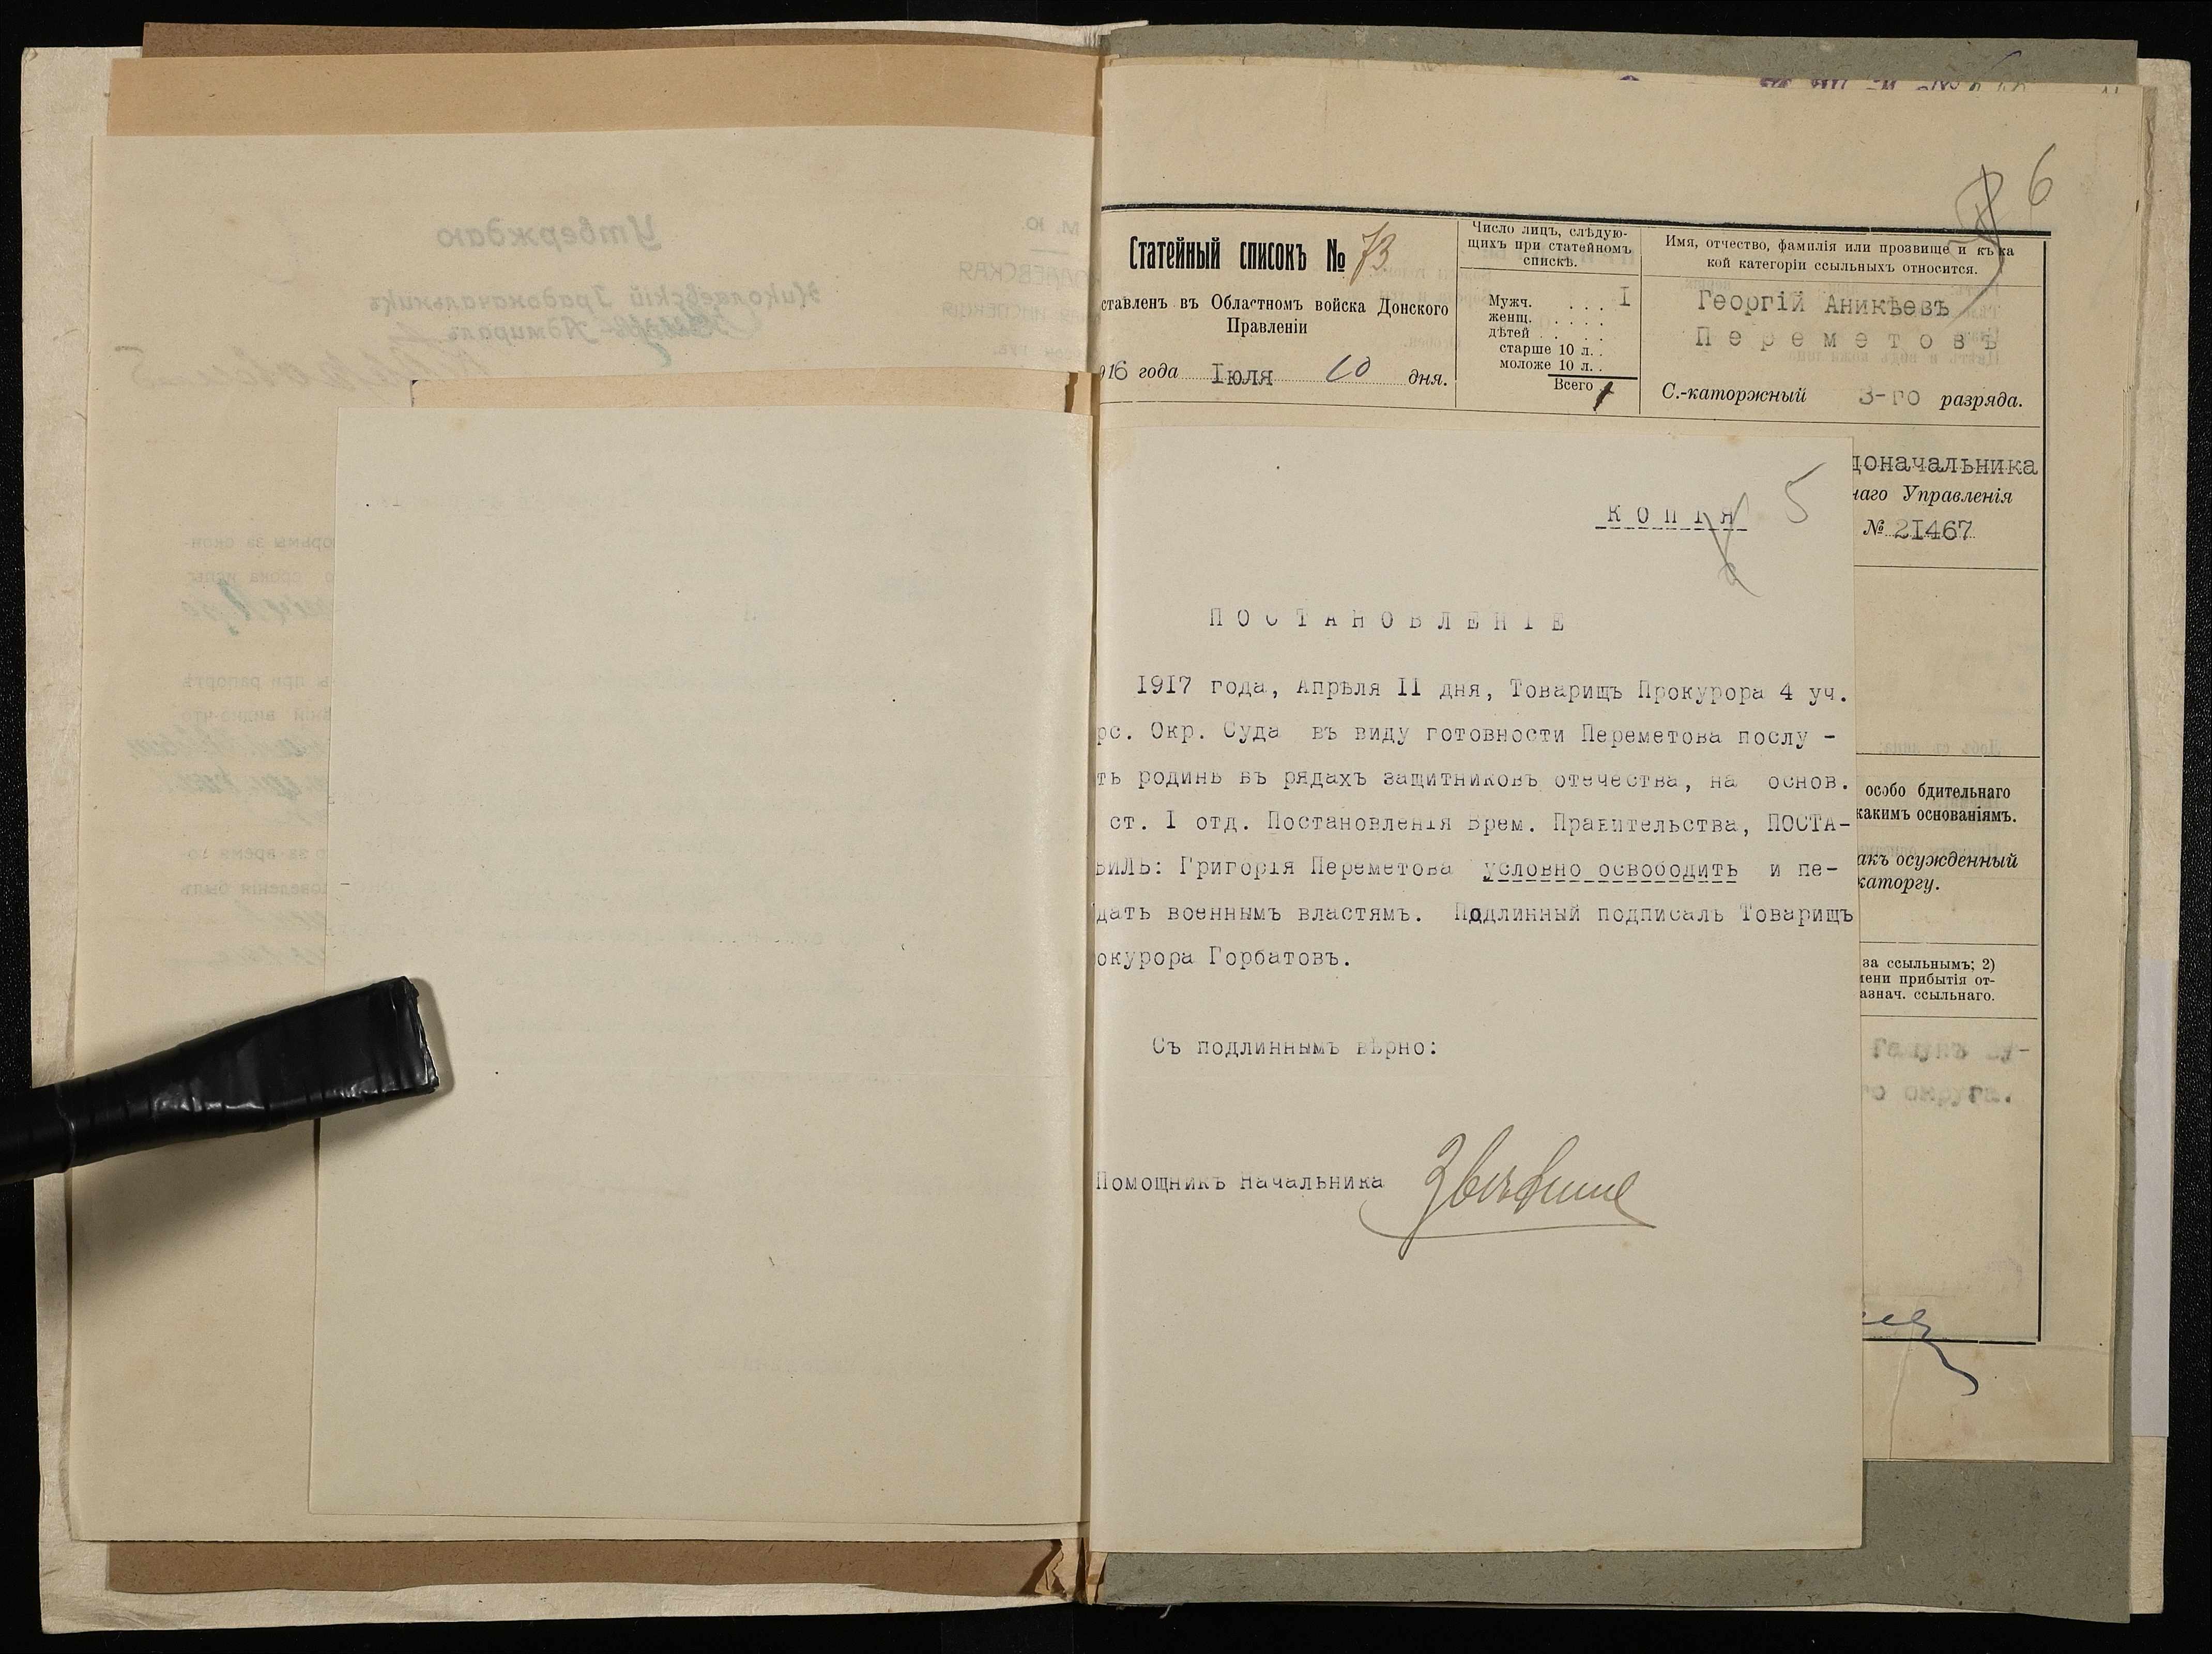 6
Статейный списокъ № 73
ставленъ въ Областномъ войска Донского
Правленіи
916 года Іюля 10 дня.
Число лицъ, слѣдую-
щихъ при статейномъ
спискѣ.
Мужч. . . . I
женщ. . . . .
дѣтей . . . .
старше 10 л. .
моложе 10 л. .
Всего 1
Имя, отчество, фамилія или прозвище и къ ка
кой категоріи ссыльныхъ относится.
Георгій Аникѣевъ
Переметовъ
С.-каторжный 3-го разряда.
доначальника
наго Управленія
№ 2I467
особо бдительнаго
какимъ основаніямъ.
акъ осужденный
каторгу.
за ссыльнымъ; 2)
мени прибытія от-
азнач. ссыльнаго.
го округа.
КОПІЯ 5
ПОСТАНОВЛЕНІЕ
I9I7 года, Апрѣля II дня, Товарищъ Прокурора 4 уч.
рс. Окр. Суда въ виду готовности Переметова послу -
ть родинѣ въ рядахъ защитниковъ отечества, на основ.
ст. I отд. Постановленія Врем. Правительства, ПОСТА-
ВИЛЪ: Григорія Переметова условно освободить и пе-
дать военнымъ властямъ. Подлинный подписалъ Товарищъ
окурора Горбатовъ.
Съ подлиннымъ вѣрно:
Помощникъ Начальника